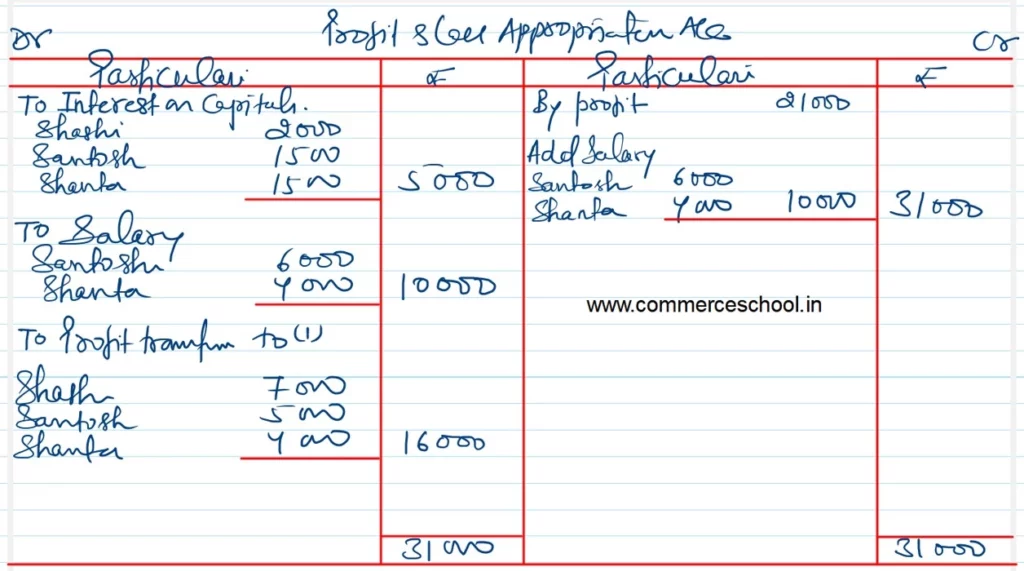 Profit & Loss Appropriation A/c
Dr Cr
Particulars ₹ Particulars ₹
To Interest on Capitals.
Shashi 2000
Santosh 1500
Shanta 1500 5000
To Salary
Santosh 6000
Shanta 4000 10000
To Profit transfer to (1)
Shashi 7000
Santosh 5000
Shanta 4000 16000
31000
By profit 21000
Add Salary
Santosh 6000
Shanta 4000 10000 31000
www.commerceschool.in
31000